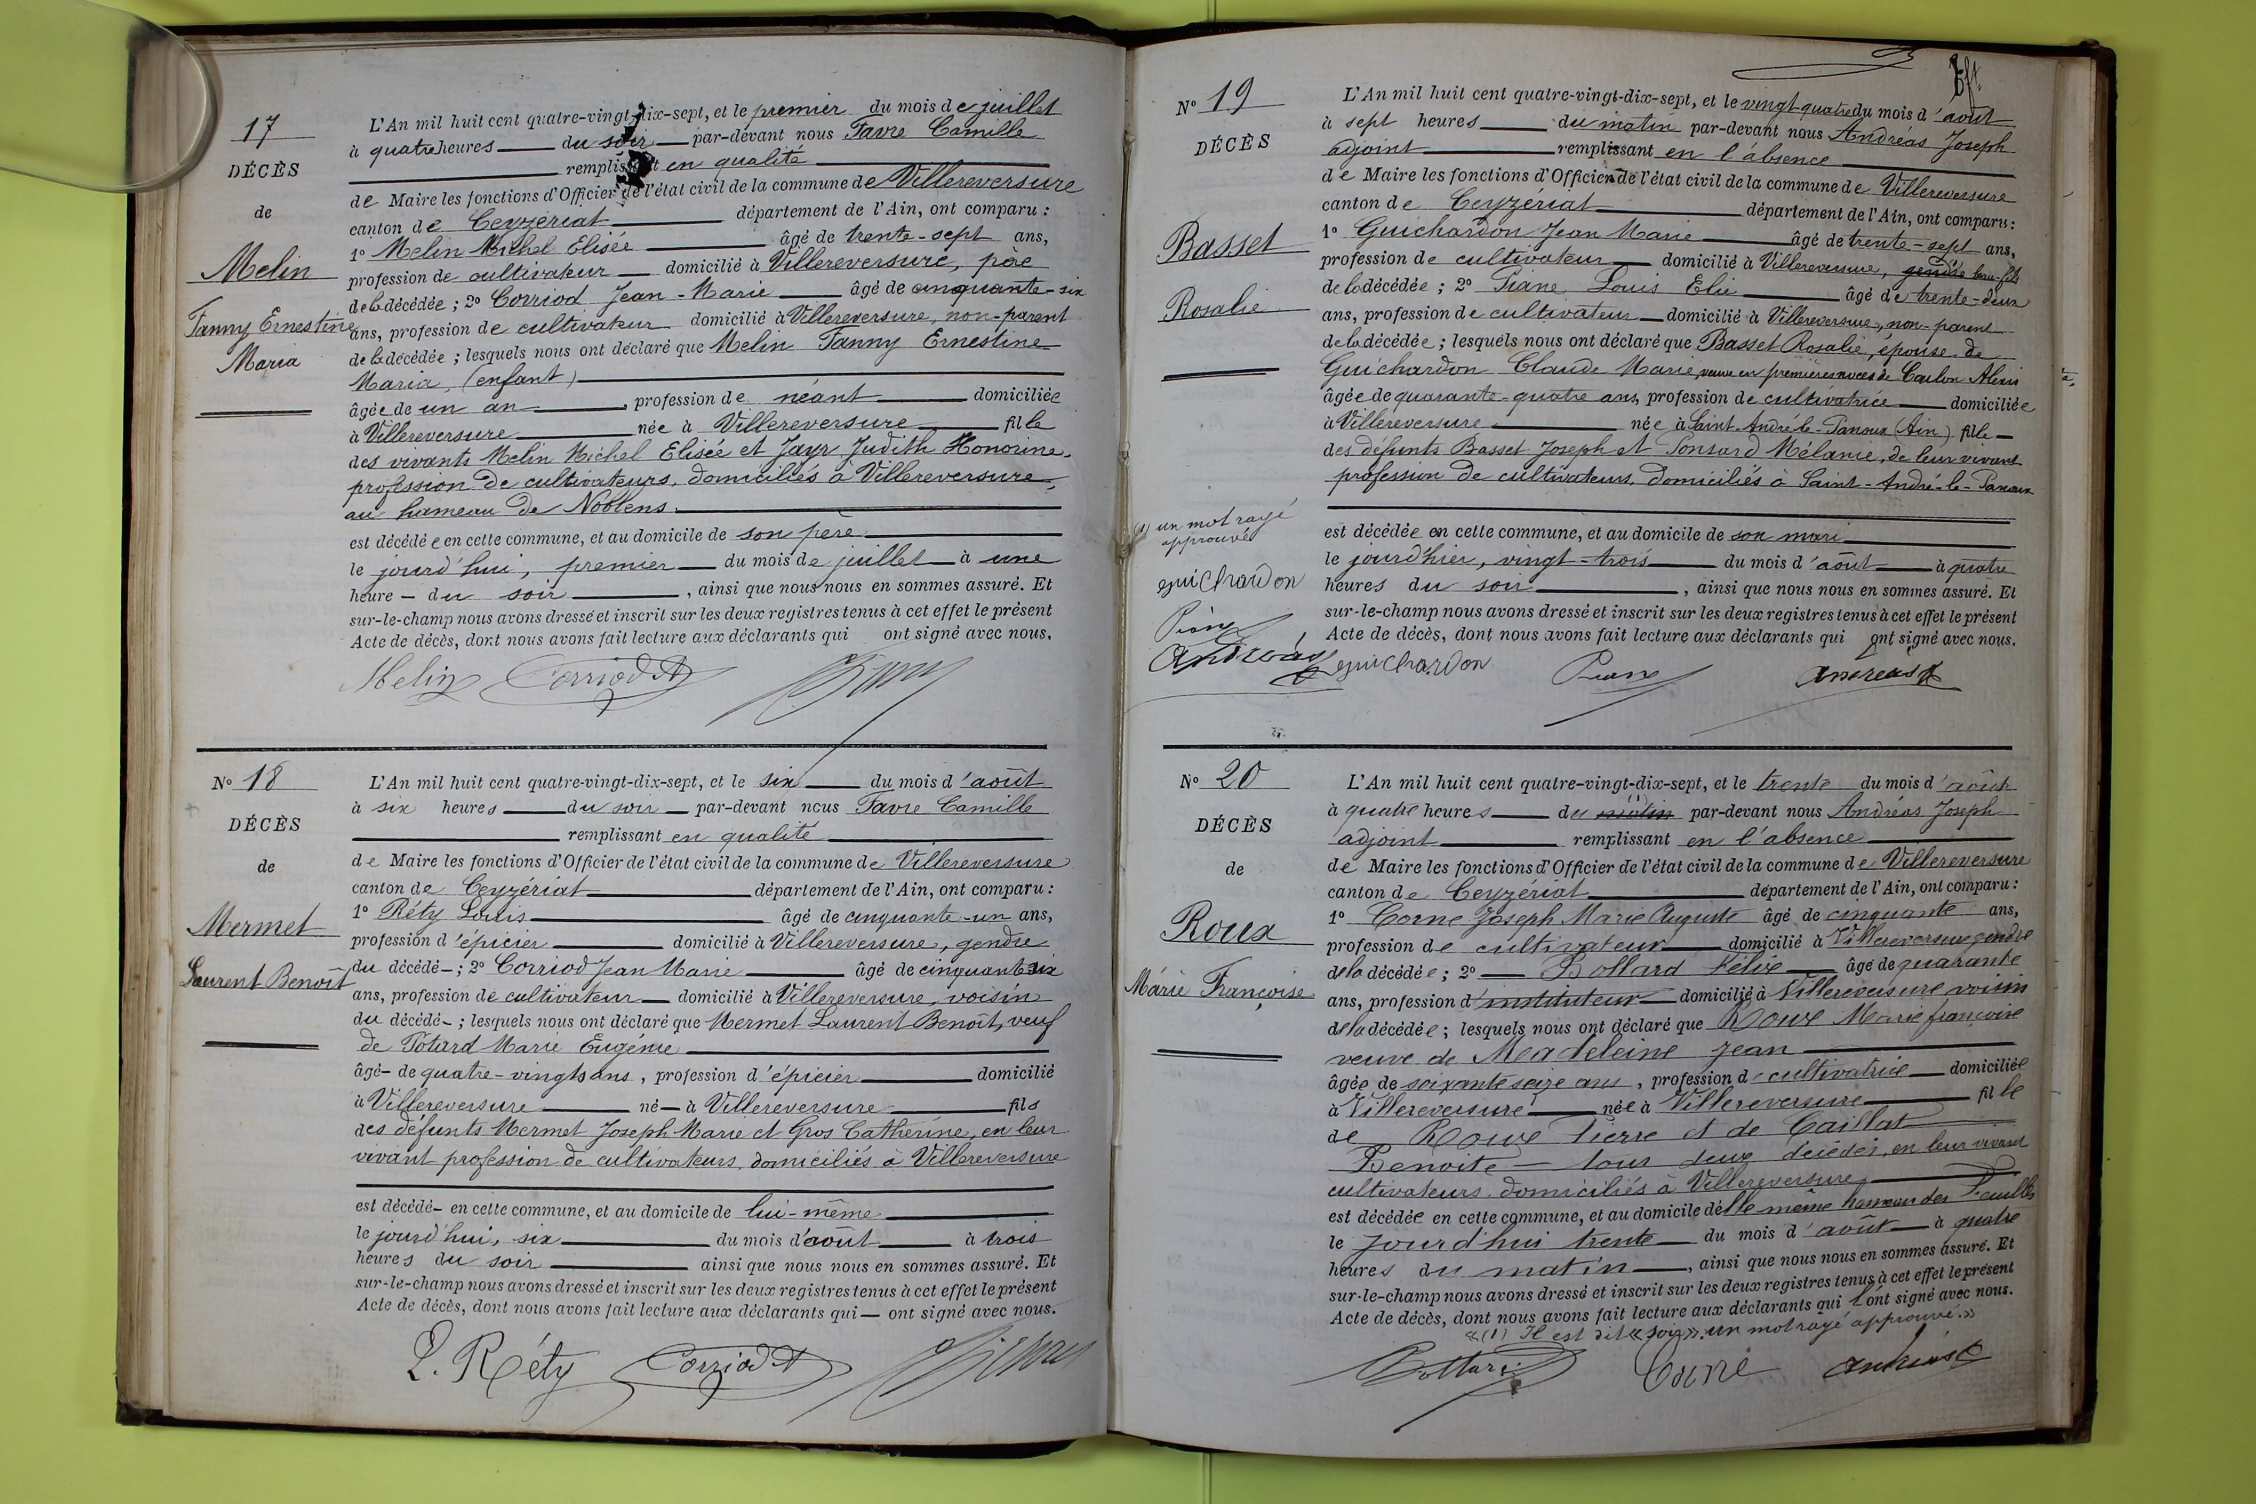 17
DÉCÈS
de
Melin
Fanny Ernestine
Maria
L'An mil huit cent quatre-vingt-dix-sept, et le premier du mois de juillet
à quatre heures du soir par-devant nous Favre Camille
remplissant en qualité
de Maire les fonctions d'Officier de l'état civil de la commune de Villereversure
canton de Ceyzériat département de l'Ain, ont comparu :
1º Melin Michel Elisée âgé de trente-sept ans,
profession de cultivateur domicilié à Villereversure, père
de la décédée ; 2º Corriod Jean-Marie âgé de cinquante-six
ans, profession de cultivateur domicilié à Villereversure, non-parent
de la décédée ; lesquels nous ont déclaré que Melin Fanny Ernestine
Maria, (enfant)
âgée de un an, profession de néant domiciliée
à Villereversure née à Villereversure fille
des vivants Melin Michel Elisée et Jayr Judith Honorine,
profession de cultivateurs, domiciliés à Villereversure,
au hameau de Noblens.
est décédée en cette commune, et au domicile de son père
le jourd'hui, premier du mois de juillet à une
heure - du soir, ainsi que nous nous en sommes assuré. Et
sur-le-champ nous avons dressé et inscrit sur les deux registres tenus à cet effet le présent
Acte de décès, dont nous avons fait lecture aux déclarants qui ont signé avec nous.
Melin Corriod
Nº 18
DÉCÈS
de
Mermet
Laurent Benoît
L'An mil huit cent quatre-vingt-dix-sept, et le six du mois d'août
à six heures du soir par-devant nous Favre Camille
remplissant en qualité
de Maire les fonctions d'Officier de l'état civil de la commune de Villereversure
canton de Ceyzériat département de l'Ain, ont comparu :
1º Réty Louis âgé de cinquante-un ans,
profession d'épicier domicilié à Villereversure, gendre
du décédé - ; 2º Corriod Jean Marie âgé de cinquante six
ans, profession de cultivateur domicilié à Villereversure, voisin
du décédé - ; lesquels nous ont déclaré que Mermet Laurent Benoît, veuf
de Potard Marie Eugénie
âgé - de quatre-vingts ans, profession d'épicier domicilié
à Villereversure né - à Villereversure fils
des défunts Mermet Joseph Marie et Gros Catherine, en leur
vivant profession de cultivateurs, domiciliés à Villereversure
est décédé - en cette commune, et au domicile de lui-même
le jourd'hui, six du mois d'août à trois
heures du soir ainsi que nous nous en sommes assuré. Et
sur-le-champ nous avons dressé et inscrit sur les deux registres tenus à cet effet le présent
Acte de décès, dont nous avons fait lecture aux déclarants qui — ont signé avec nous.
L. Réty Corriod
Nº 19
DÉCÈS
Basset
Rosalie
(1) un mot rayé
approuvé
guichardon
Piane
Andréas
L'An mil huit cent quatre-vingt-dix-sept, et le vingt-quatre du mois d'août
à sept heures du matin par-devant nous Andréas Joseph
adjoint remplissant en l'absence
de Maire les fonctions d'Officier de l'état civil de la commune de Villereversure
canton de Ceyzériat département de l'Ain, ont comparu :
1º Guichardon Jean Marie âgé de trente-sept ans,
profession de cultivateur domicilié à Villereversure, gendre beau-fils
de la décédée ; 2º Piane Louis Elie âgé de trente-deux
ans, profession de cultivateur domicilié à Villereversure, non-parent
de la décédée ; lesquels nous ont déclaré que Basset Rosalie, épouse de
Guichardon Claude Marie, veuve en premières noces de Alexis
âgée de quarante-quatre ans, profession de cultivatrice domiciliée
à Villereversure née à Saint-André-le-Panoux (Ain) fille
des défunts Basset Joseph et Ponsard Mélanie, de leur vivant
profession de cultivateurs, domiciliés à Saint-André-le-Panoux
est décédée en cette commune, et au domicile de son mari
le jourd'hier, vingt-trois du mois d'août à quatre
heures du soir, ainsi que nous nous en sommes assuré. Et
sur-le-champ nous avons dressé et inscrit sur les deux registres tenus à cet effet le présent
Acte de décès, dont nous avons fait lecture aux déclarants qui ont signé avec nous.
guichardon Piane Andréas
Nº 20
DÉCÈS
de
Roux
Marie Françoise
L'An mil huit cent quatre-vingt-dix-sept, et le trente du mois d'août
à quatre heures du matin par-devant nous Andréas Joseph
adjoint remplissant en l'absence
de Maire les fonctions d'Officier de l'état civil de la commune de Villereversure
canton de Ceyzériat département de l'Ain, ont comparu :
1º Corne Joseph Marie Auguste âgé de cinquante ans,
profession de cultivateur domicilié à Villereversure gendre
de la décédée ; 2º Bollard Félix âgé de quarante
ans, profession d'instituteur domicilié à Villereversure voisin
de la décédée ; lesquels nous ont déclaré que Roux Marie françoise
veuve de Madeleine Jean
âgée de soixante seize ans, profession de cultivatrice domiciliée
à Villereversure née à Villereversure fille
de Roux Pierre et de Caillat
Benoite — tous deux décédés, en leur vivant
cultivateurs domiciliés à Villereversure
est décédée en cette commune, et au domicile d'elle même hameau des
le jourd'hui trente du mois d'août à quatre
heures du matin, ainsi que nous nous en sommes assuré. Et
sur-le-champ nous avons dressé et inscrit sur les deux registres tenus à cet effet le présent
Acte de décès, dont nous avons fait lecture aux déclarants qui l'ont signé avec nous.
«(1) Il est dit « soir » un mot rayé approuvé.»
Bollard Corne Andréas